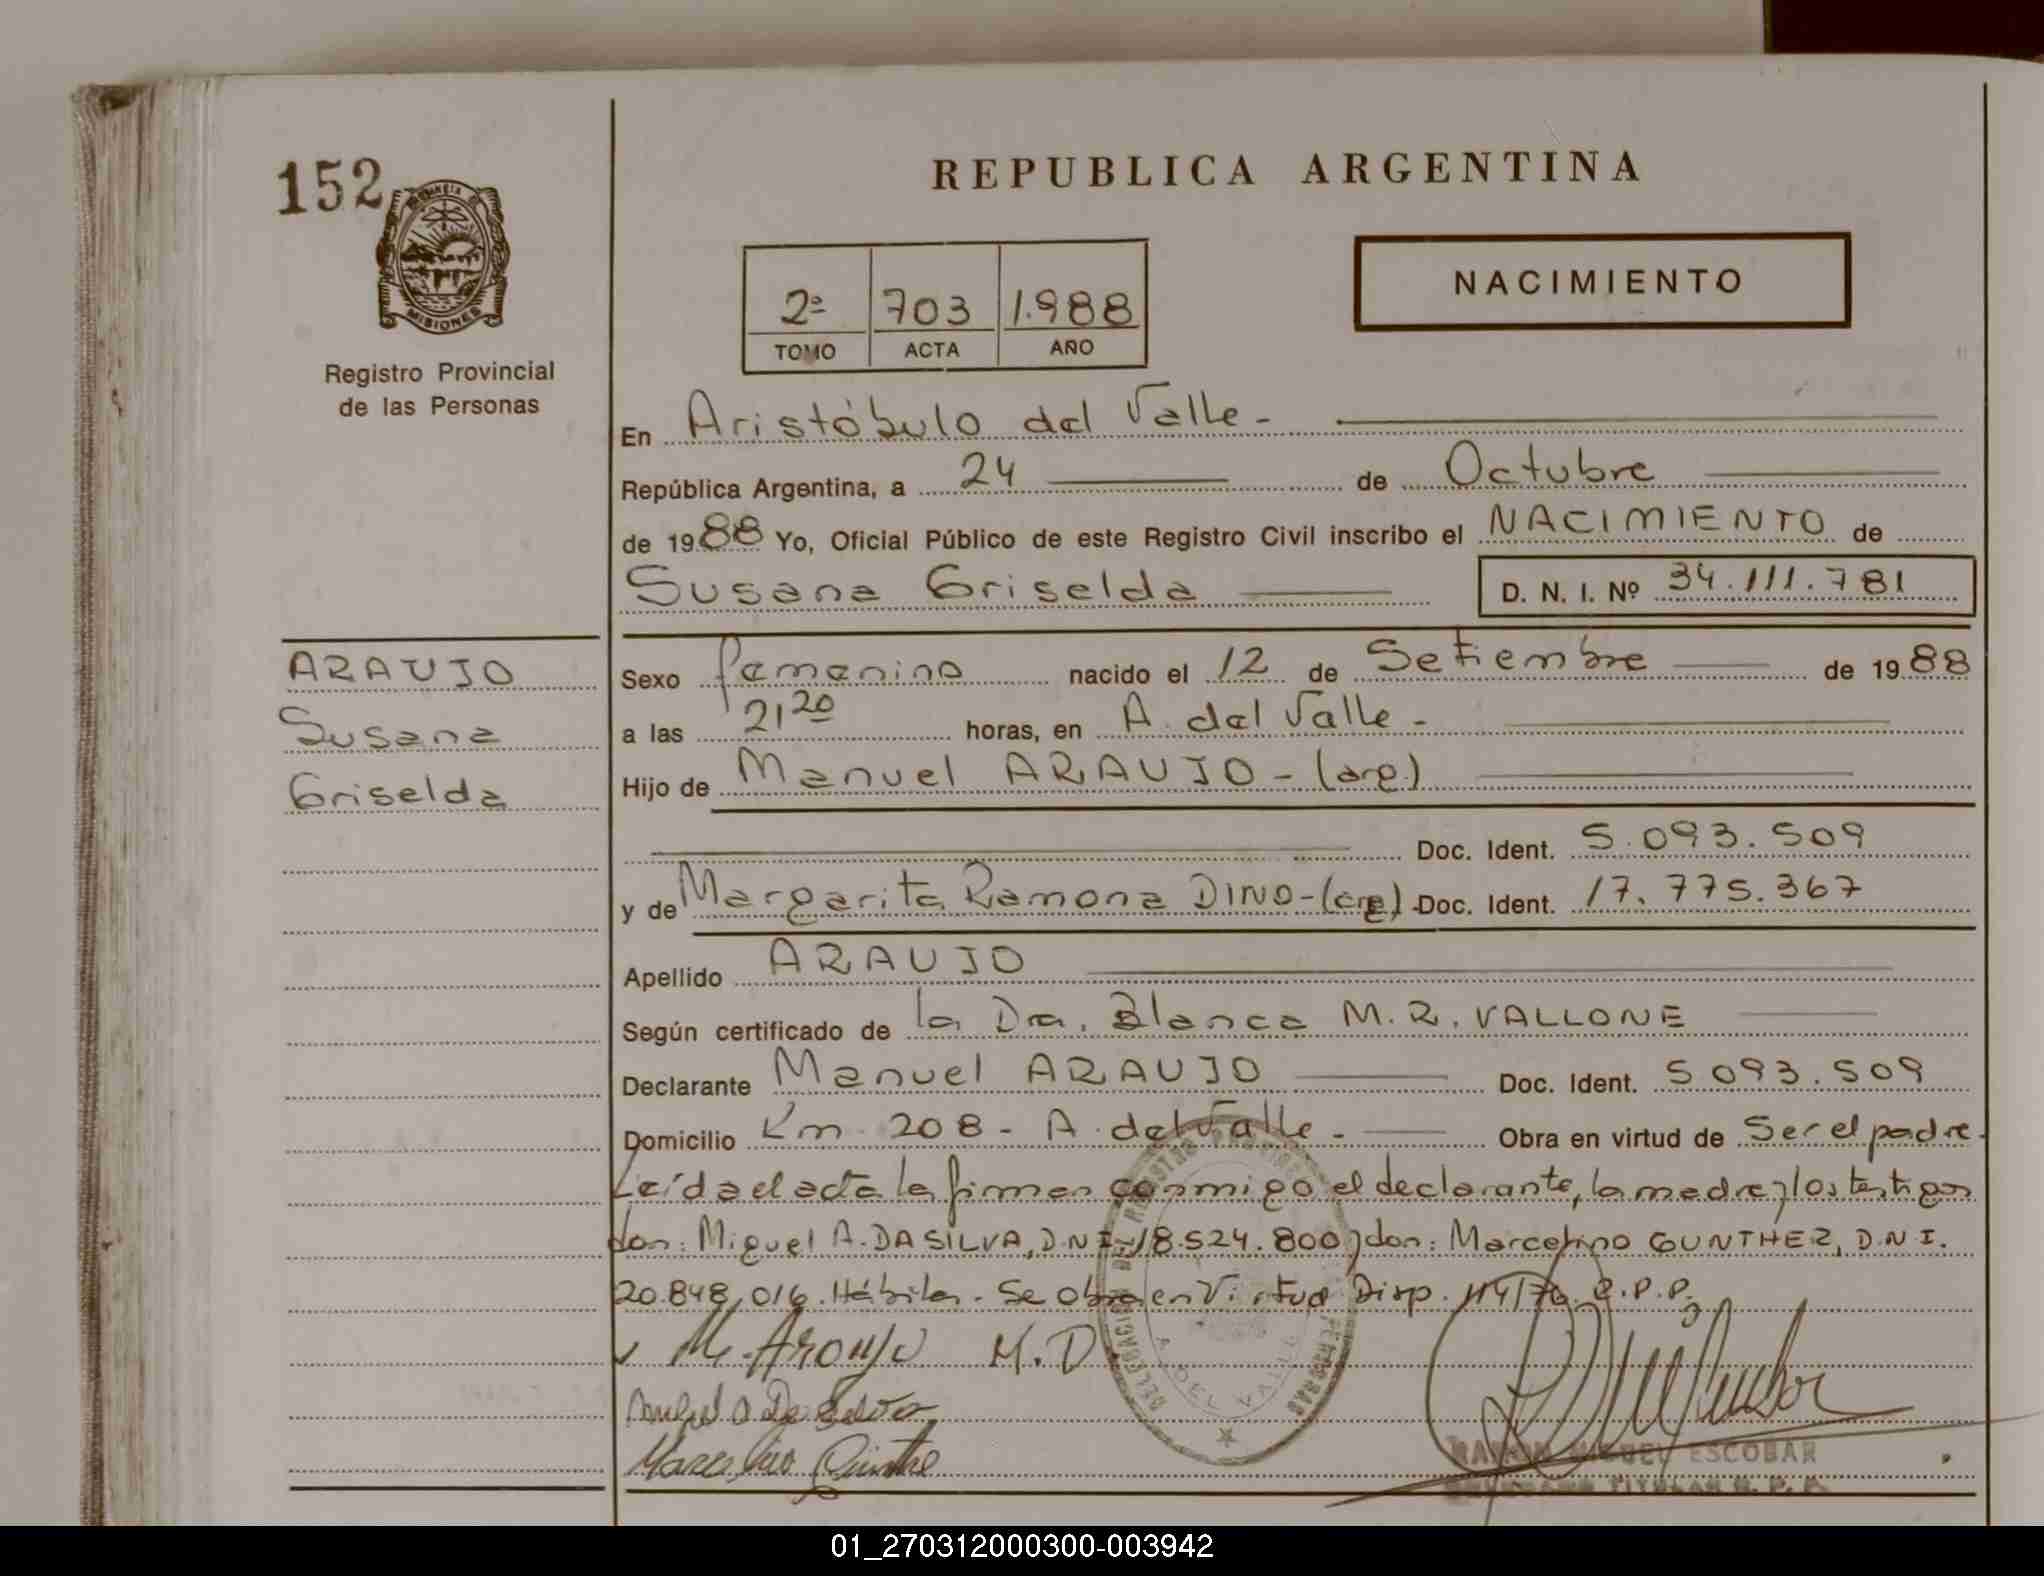 152
REPUBLICA ARGENTINA
PROVINCIA DE
MISIONES
Registro Provincial
de las Personas
2ª 703 1.988
TOMO ACTA AÑO
NACIMIENTO
En Aristóbulo del Valle -
República Argentina, a 24 de Octubre
de 1988 Yo, Oficial Público de este Registro Civil inscribo el NACIMIENTO de
Susana Griselda D. N. I. Nº 34.111.781
ARAUJO
Susana
Griselda
Sexo femenino nacido el 12 de Setiembre de 1988
a las 21 20 horas, en A. del Valle -
Hijo de Manuel ARAUJO - (arg.)
Doc. Ident. 5.093.509
y de Margarita Ramona DINO - (arg) - Doc. Ident. 17.775.367
Apellido ARAUJO
Según certificado de la Dra. Blanca M. R. VALLONE
Declarante Manuel ARAUJO Doc. Ident. 5.093.509
Domicilio Km. 208 - A. del Valle - Obra en virtud de Ser el padre.
Leída el acta la firman conmigo el declarante, la madre y los testigos
don: Miguel A. DA SILVA, D.N.I. 18.524.800 y don: Marcelino GUNTHER, D.N.I.
20.848.016. Hábiles. Se obra en Virtud Disp. 114/76. R.P.P.
M. Araujo M. D.
Miguel A Da Silva
Marcelino
DELEGACION DEL REGISTRO PROVINCIAL DE LAS PERSONAS
A. DEL VALLE
RAMON MIGUEL ESCOBAR
DELEGADO TITULAR R. P. P.
01_270312000300-003942